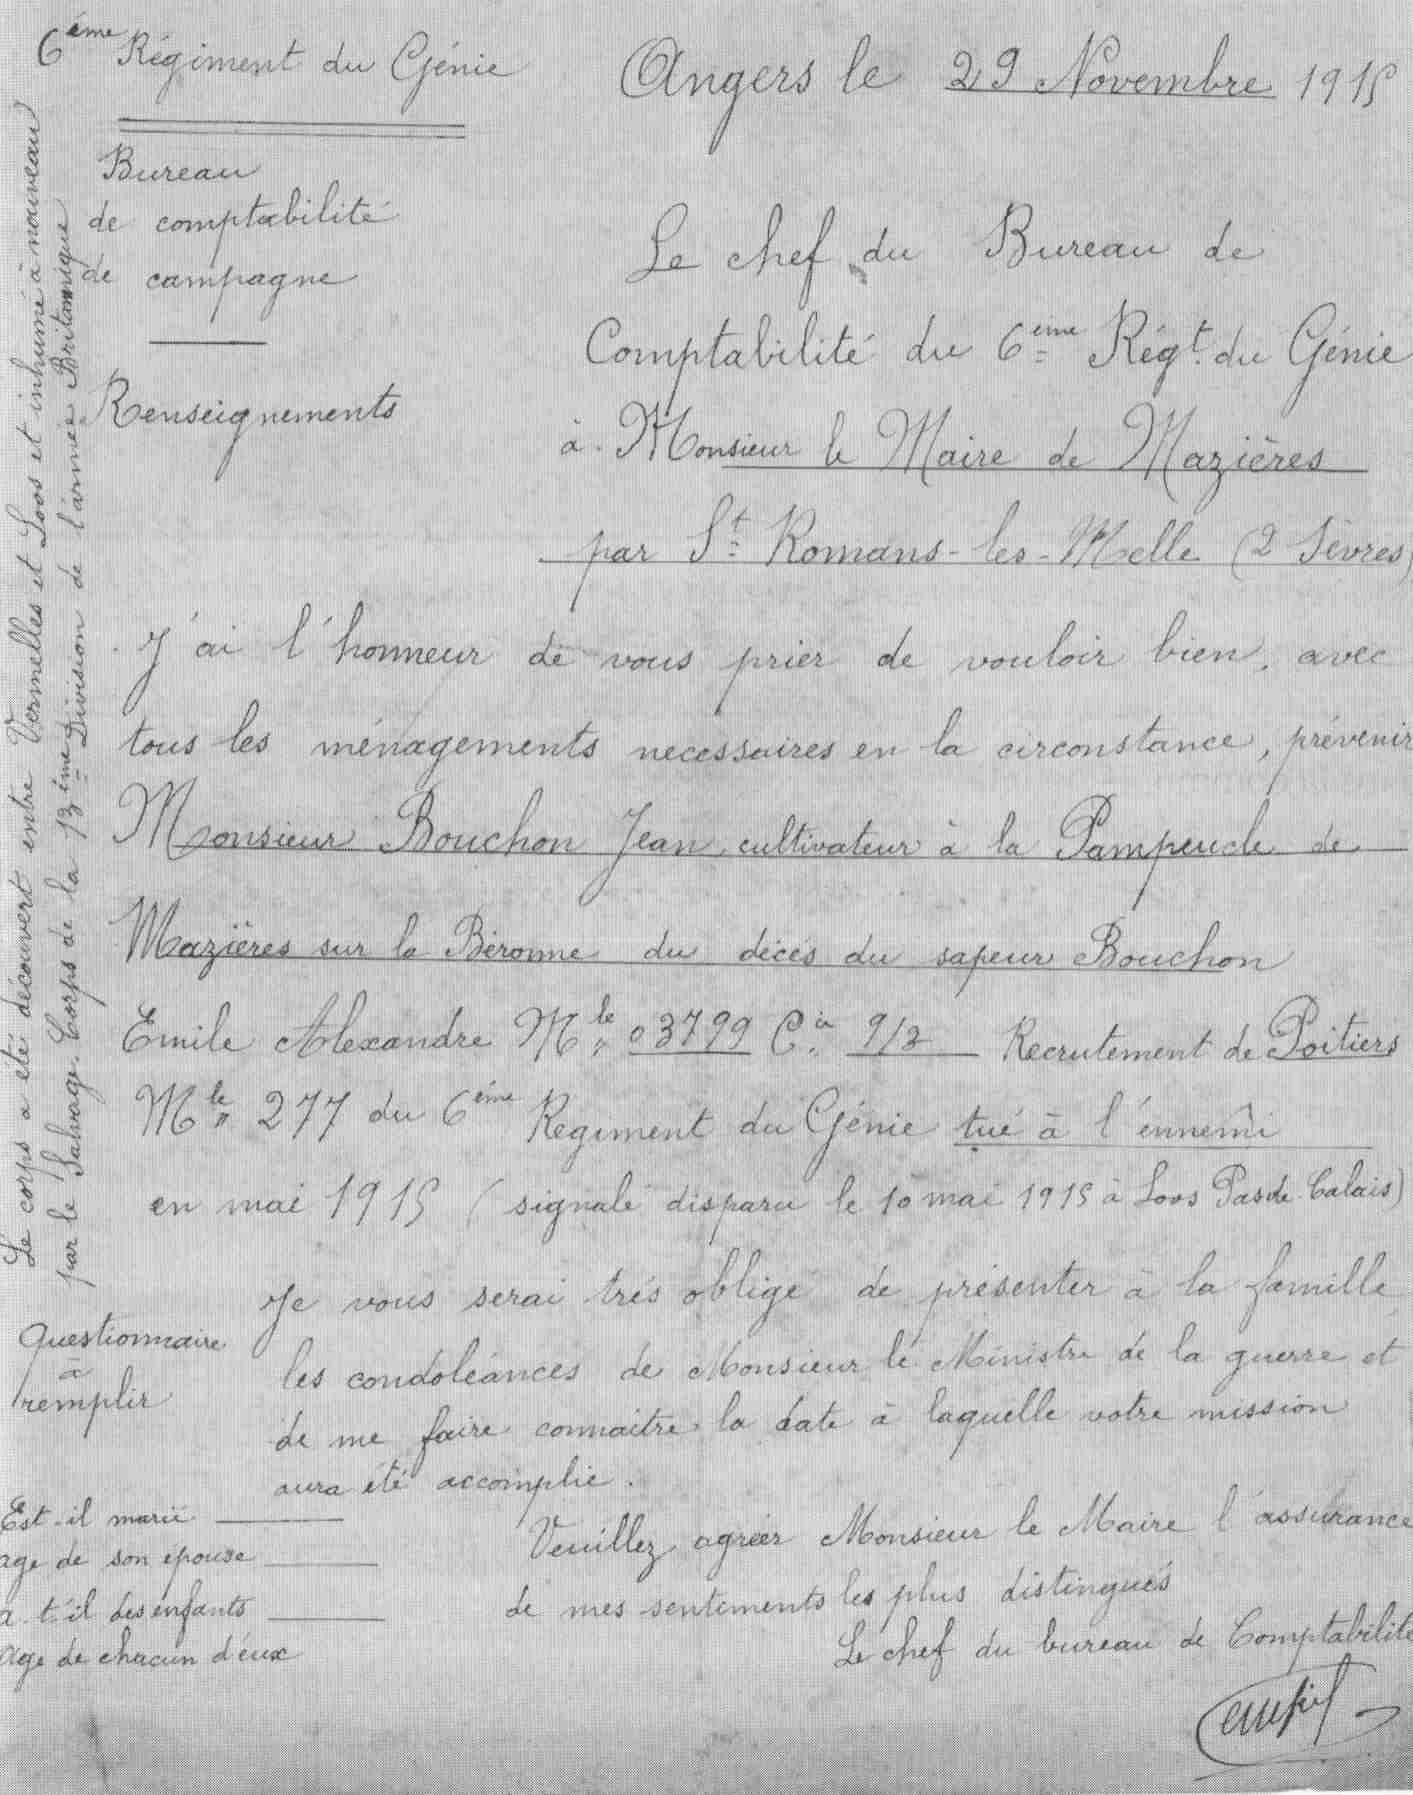 6ème Régiment du Génie
Angers le 29 Novembre 1915
Bureau
de comptabilité
de campagne
Renseignements
Le chef du Bureau de
Comptabilité du 6ème Régt. du Génie
à Monsieur le Maire de Mazières
par St Romans-les-Melle (2 Sèvres)
J'ai l'honneur de vous prier de vouloir bien, avec
tous les ménagements necessaires en la circonstance, prévenir
Monsieur Bouchon Jean cultivateur à la Pampeucle de
Mazières sur la Béronne du décès du sapeur Bouchon
Emile Alexandre Mle 03799 Cie 9/3 Recrutement de Poitiers
Mle 277 du 6ème Régiment du Génie tué à l'ennemi
en mai 1915 (signalé disparu le 10 mai 1915 à Loos Pas de Calais)
Je vous serai trés obligé de présenter à la famille
les condoléances de Monsieur le Ministre de la guerre et
de me faire connaitre la date à laquelle votre mission
aura été accomplie.
Veuillez agréer Monsieur le Maire l'assurance
de mes sentiments les plus distingués
Le chef du bureau de Comptabilité
Questionnaire
à
remplir
Est-il marié
age de son épouse
a-t'il des enfants
Age de chacun d'eux
Le corps a été découvert entre Vermelles et Loos et inhumé à nouveau
par le Salvage-Corps de la 13ème Division de l'armée Britannique